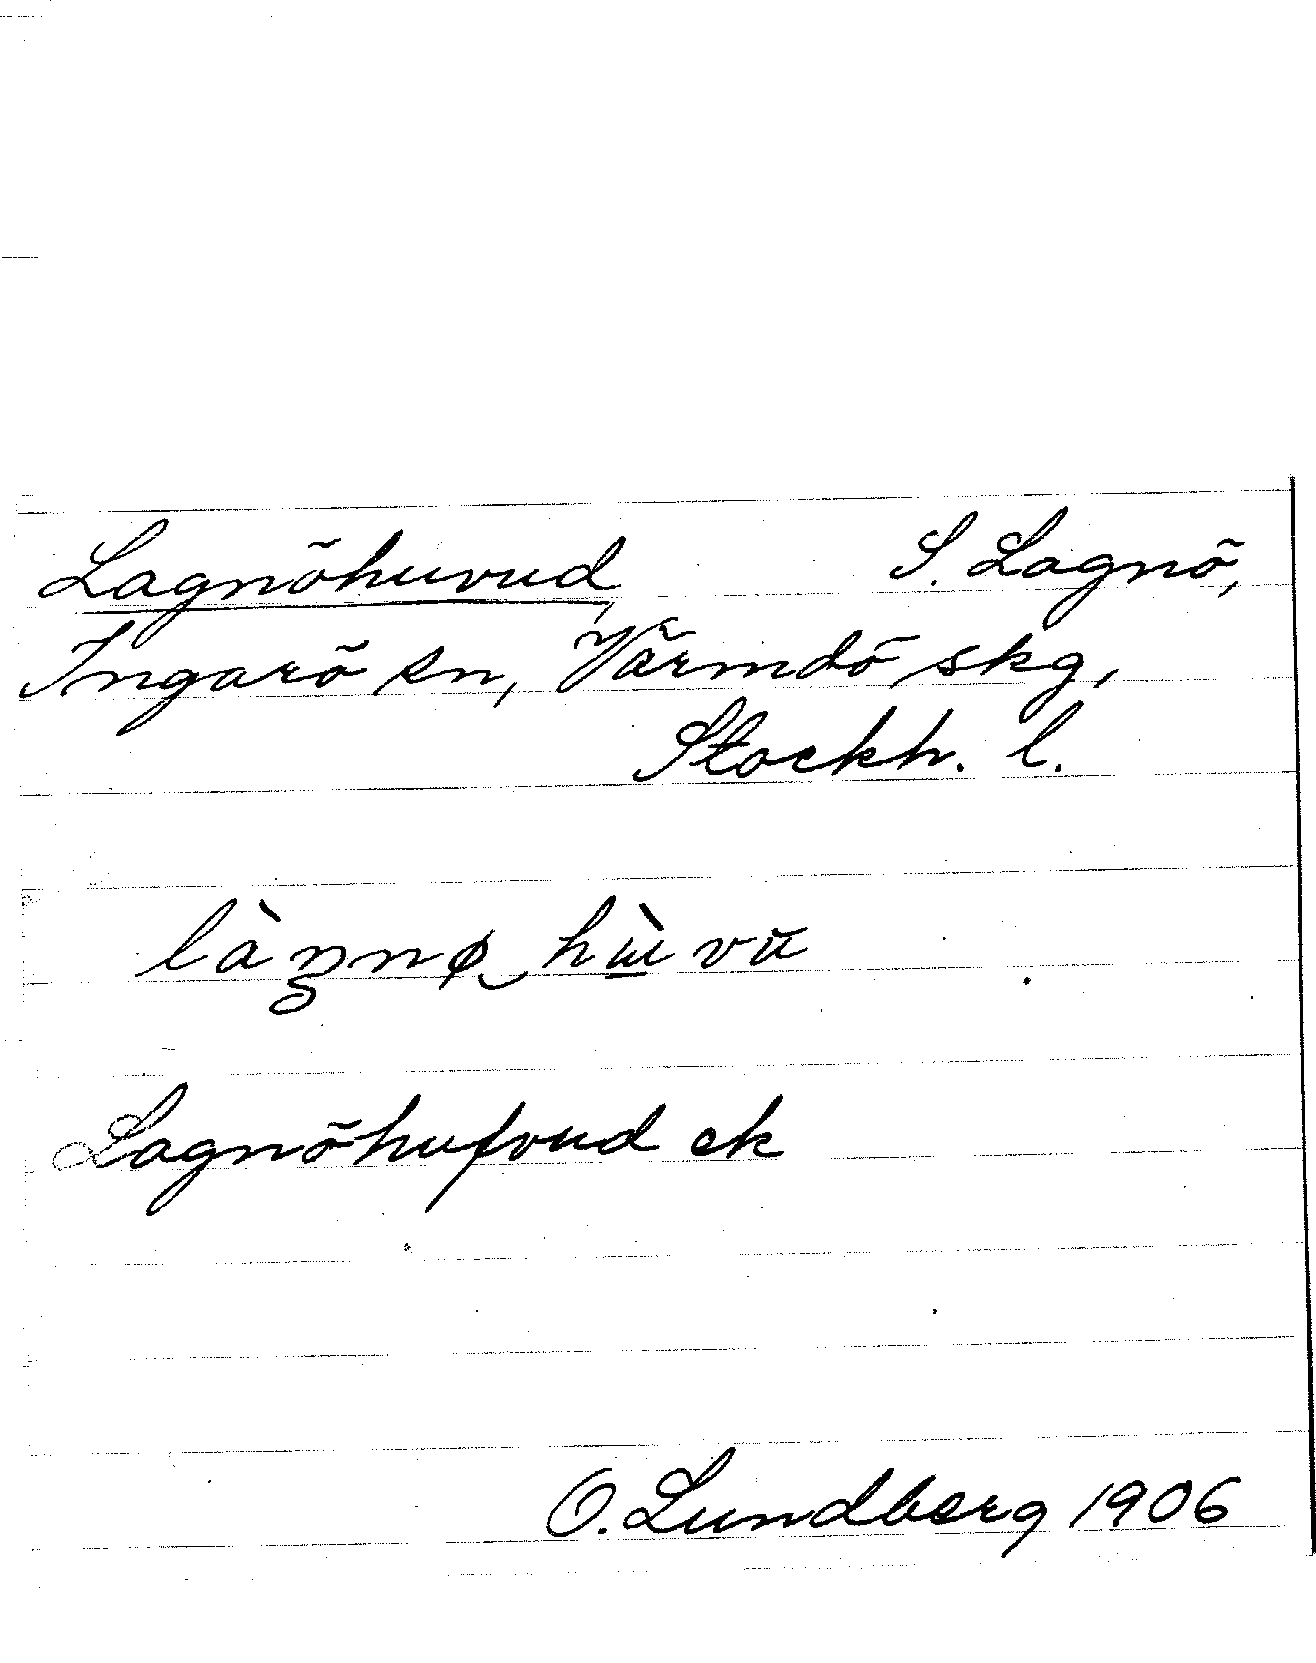 Lagnöhuvud, S. Lagnö,
Ingarö sn, Värmdö skg,
Stockh. l.
làŋnø hùvu
Lagnöhufvud ek
O. Lundberg 1906